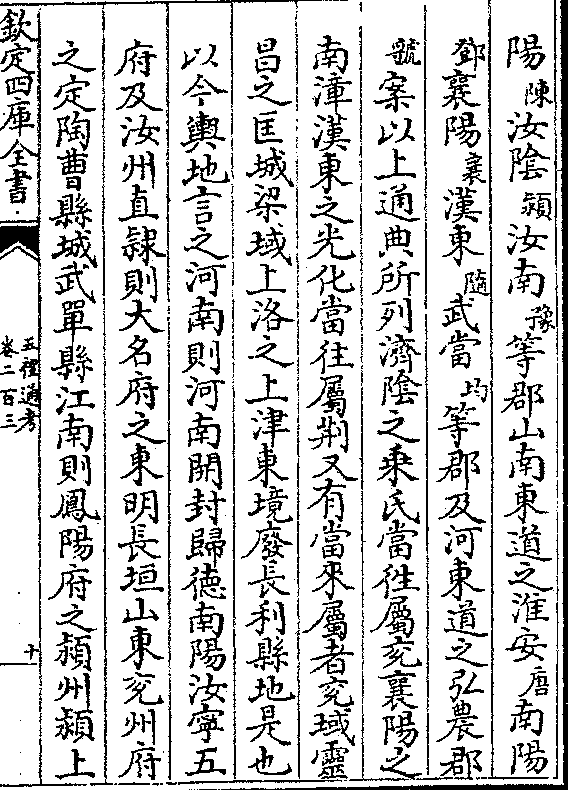 陽陳汝陰潁汝南豫等郡山南東道之淮安唐南陽
鄧襄陽襄漢東隨武當均等郡及河東道之弘農郡
虢案以上通典所列濟陰之乘氏當往屬兖襄陽之
南漳漢東之光化當往屬荆又有當來屬者兖域靈
昌之匡城梁域上洛之上津東境廢長利縣地是也
以今輿地言之河南則河南開封歸德南陽汝寧五
府及汝州直隸則大名府之東明長垣山東兖州府
之定陶曹縣城武單縣江南則鳳陽府之潁州潁上
欽定四庫全書
五禮通考
卷二百三
十